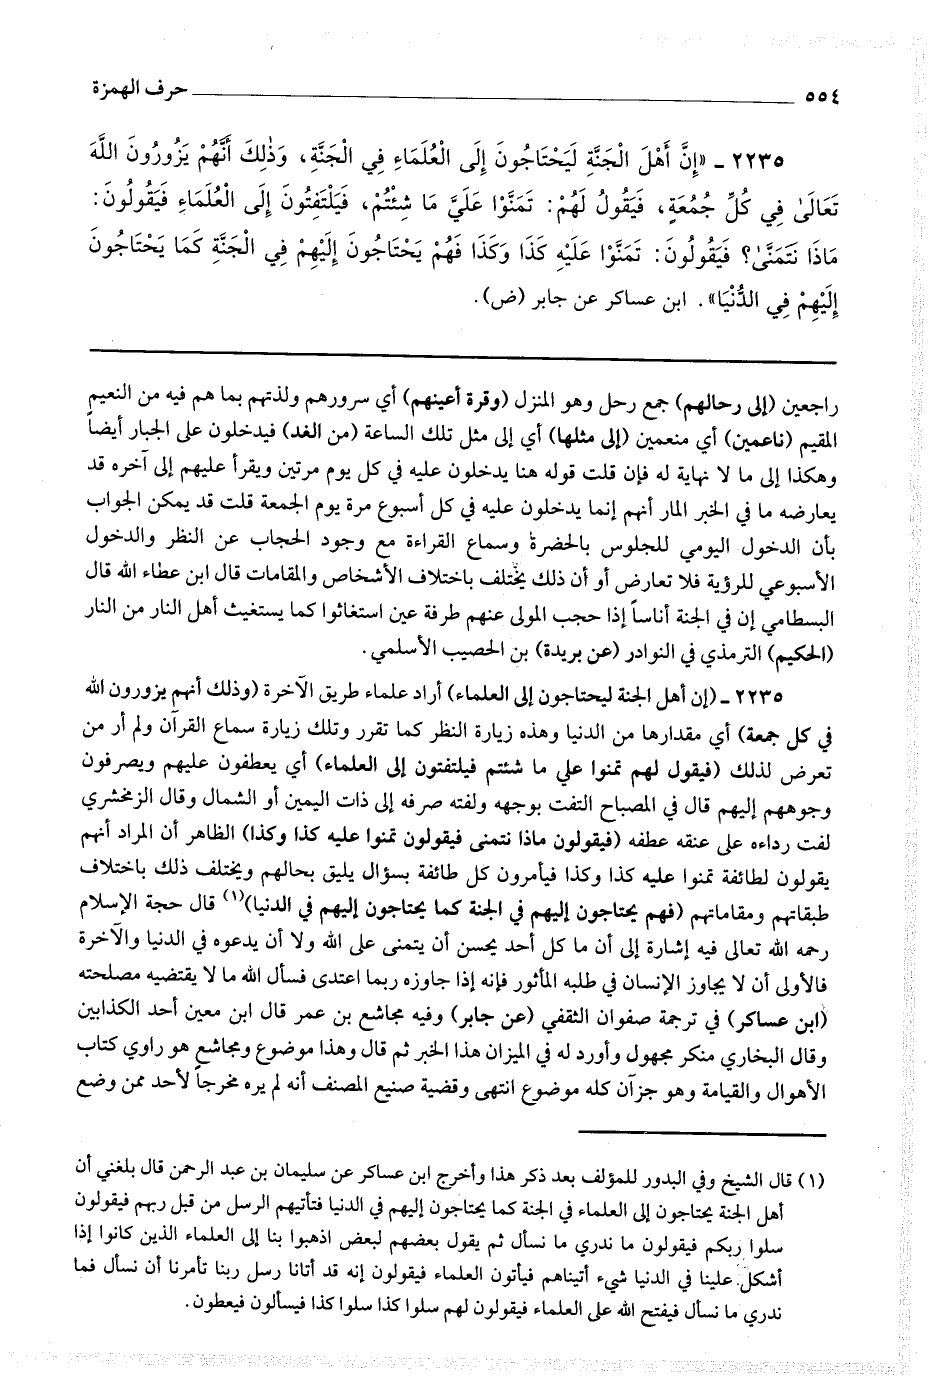 ٥٥٤ حرف الهمزة
٢٢٣٥ ـ «إِنَّ أَهْلَ الْجَنَّةِ لَيَحْتَاجُونَ إِلَى الْعُلَمَاءِ فِي الْجَنَّةِ، وَذٰلِكَ أَنَّهُمْ يَزُورُونَ اللَّهَ
تَعَالَىٰ فِي كُلِّ جُمُعَةٍ، فَيَقُولُ لَهُمْ: تَمَنَّوْا عَلَيَّ مَا شِئْتُمْ، فَيَلْتَفِتُونَ إِلَى الْعُلَمَاءِ فَيَقُولُونَ:
مَاذَا نَتَمَنَّىٰ؟ فَيَقُولُونَ: تَمَنَّوْا عَلَيْهِ كَذَا وَكَذَا فَهُمْ يَحْتَاجُونَ إِلَيْهِمْ فِي الْجَنَّةِ كَمَا يَحْتَاجُونَ
إِلَيْهِمْ فِي الدُّنْيَا». ابن عساكر عن جابر (ض).
راجعين (إلى رحالهم) جمع رحل وهو المنزل (وقرة أعينهم) أي سرورهم ولذتهم بما هم فيه من النعيم
المقيم (ناعمين) أي منعمين (إلى مثلها) أي إلى مثل تلك الساعة (من الغد) فيدخلون على الجبار أيضاً
وهكذا إلى ما لا نهاية له فإن قلت قوله هنا يدخلون عليه في كل يوم مرتين ويقرأ عليهم إلى آخره قد
يعارضه ما في الخبر المار أنهم إنما يدخلون عليه في كل أسبوع مرة يوم الجمعة قلت قد يمكن الجواب
بأن الدخول اليومي للجلوس بالحضرة وسماع القراءة مع وجود الحجاب عن النظر والدخول
الأسبوعي للرؤية فلا تعارض أو أن ذلك يختلف باختلاف الأشخاص والمقامات قال ابن عطاء الله قال
البسطامي إن في الجنة أناساً إذا حجب المولى عنهم طرفة عين استغاثوا كما يستغيث أهل النار من النار
(الحكيم) الترمذي في النوادر (عن بريدة) بن الحصيب الأسلمي.
٢٢٣٥ ـ (إن أهل الجنة ليحتاجون إلى العلماء) أراد علماء طريق الآخرة (وذلك أنهم يزورون الله
في كل جمعة) أي مقدارها من الدنيا وهذه زيارة النظر كما تقرر وتلك زيارة سماع القرآن ولم أر من
تعرض لذلك (فيقول لهم تمنوا علي ما شئتم فيلتفتون إلى العلماء) أي يعطفون عليهم ويصرفون
وجوههم إليهم قال في المصباح التفت بوجهه ولفته صرفه إلى ذات اليمين أو الشمال وقال الزمخشري
لفت رداءه على عنقه عطفه (فيقولون ماذا نتمنى فيقولون تمنوا عليه كذا وكذا) الظاهر أن المراد أنهم
يقولون لطائفة تمنوا عليه كذا وكذا فيأمرون كل طائفة بسؤال يليق بحالهم ويختلف ذلك باختلاف
طبقاتهم ومقاماتهم (فهم يحتاجون إليهم في الجنة كما يحتاجون إليهم في الدنيا)(١) قال حجة الإسلام
رحمه الله تعالى فيه إشارة إلى أن ما كل أحد يحسن أن يتمنى على الله ولا أن يدعوه في الدنيا والآخرة
فالأولى أن لا يجاوز الإنسان في طلبه المأثور فإنه إذا جاوزه ربما اعتدى فسأل الله ما لا يقتضيه مصلحته
(ابن عساكر) في ترجمة صفوان الثقفي (عن جابر) وفيه مجاشع بن عمر قال ابن معين أحد الكذابين
وقال البخاري منكر مجهول وأورد له في الميزان هذا الخبر ثم قال وهذا موضوع ومجاشع هو راوي كتاب
الأهوال والقيامة وهو جزآن كله موضوع انتهى وقضية صنيع المصنف أنه لم يره مخرجاً لأحد ممن وضع
(١) قال الشيخ وفي البدور للمؤلف بعد ذكر هذا وأخرج ابن عساكر عن سليمان بن عبد الرحمن قال بلغني أن
أهل الجنة يحتاجون إلى العلماء في الجنة كما يحتاجون إليهم في الدنيا فتأتيهم الرسل من قبل ربهم فيقولون
سلوا ربكم فيقولون ما ندري ما نسأل ثم يقول بعضهم لبعض اذهبوا بنا إلى العلماء الذين كانوا إذا
أشكل علينا في الدنيا شيء أتيناهم فيأتون العلماء فيقولون إنه قد أتانا رسل ربنا تأمرنا أن نسأل فما
ندري ما نسأل فيفتح الله على العلماء فيقولون لهم سلوا كذا سلوا كذا فيسألون فيعطون.